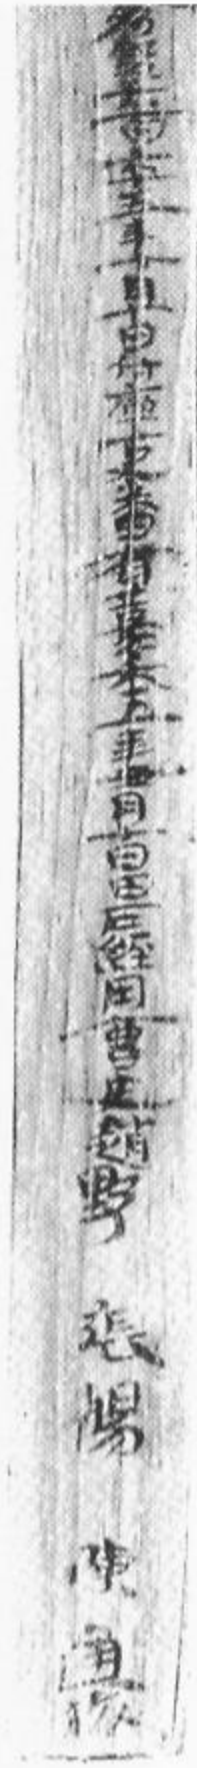 五年十月廿日付庫吏番有嘉禾五年三月十日田戶經用曹史趙野 張惕 陳通校